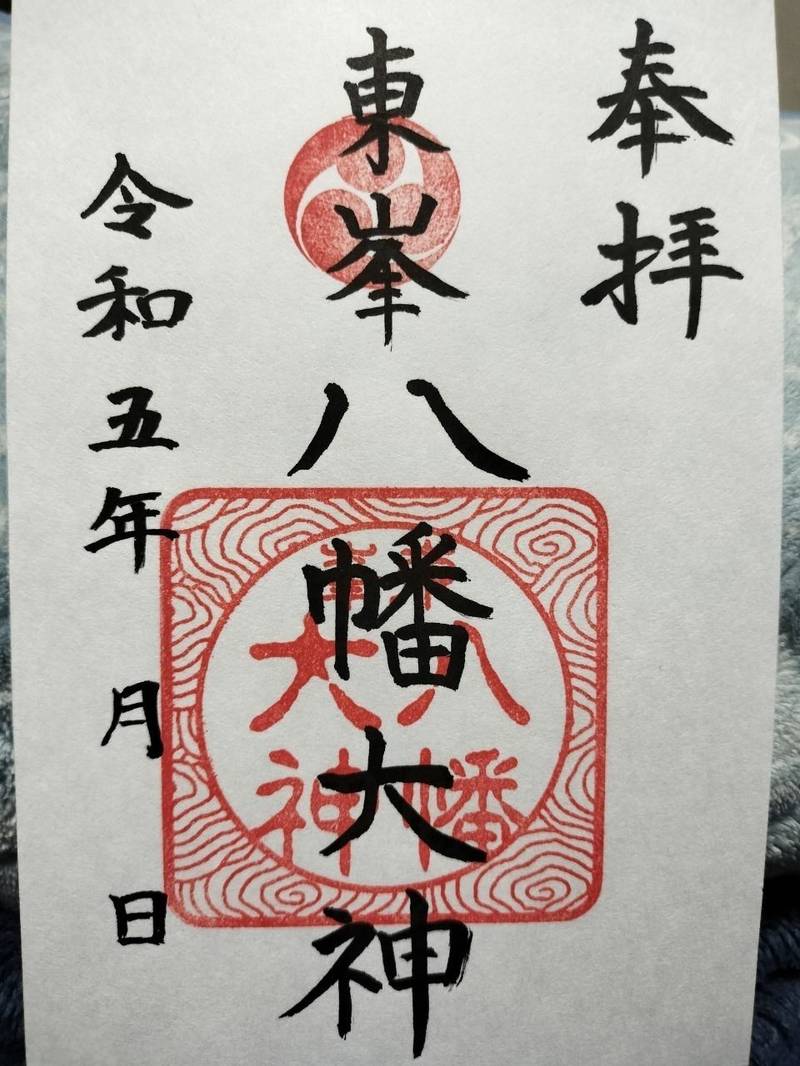 奉拝
東峯八幡大神
東峯
八幡
大神
令和五年 月 日